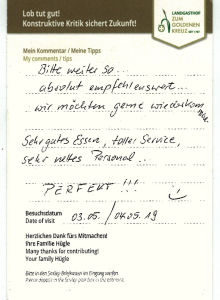 Lob tut gut!
Konstruktive Kritik sichert Zukunft!
LANDGASTHOF
ZUM
GOLDENEN
KREUZ
Mein Kommentar / Meine Tipps
My comments / tips
Bitte weiter so...
absolut empfehlenswert...
wir möchten gerne wiederkommen
Sehr gutes Essen, toller Service,
sehr nettes Personal..
PERFEKT!!!
Besuchsdatum
Date of visit
03.05. / 04.05.19
Herzlichen Dank fürs Mitmachen!
Ihre Familie Hügle
Many thanks for contributing!
Your family Hügle
Bitte in den Smiley-Briefkasten im Eingang werfen.
Please deposit in the Smiley post box in the entrance.